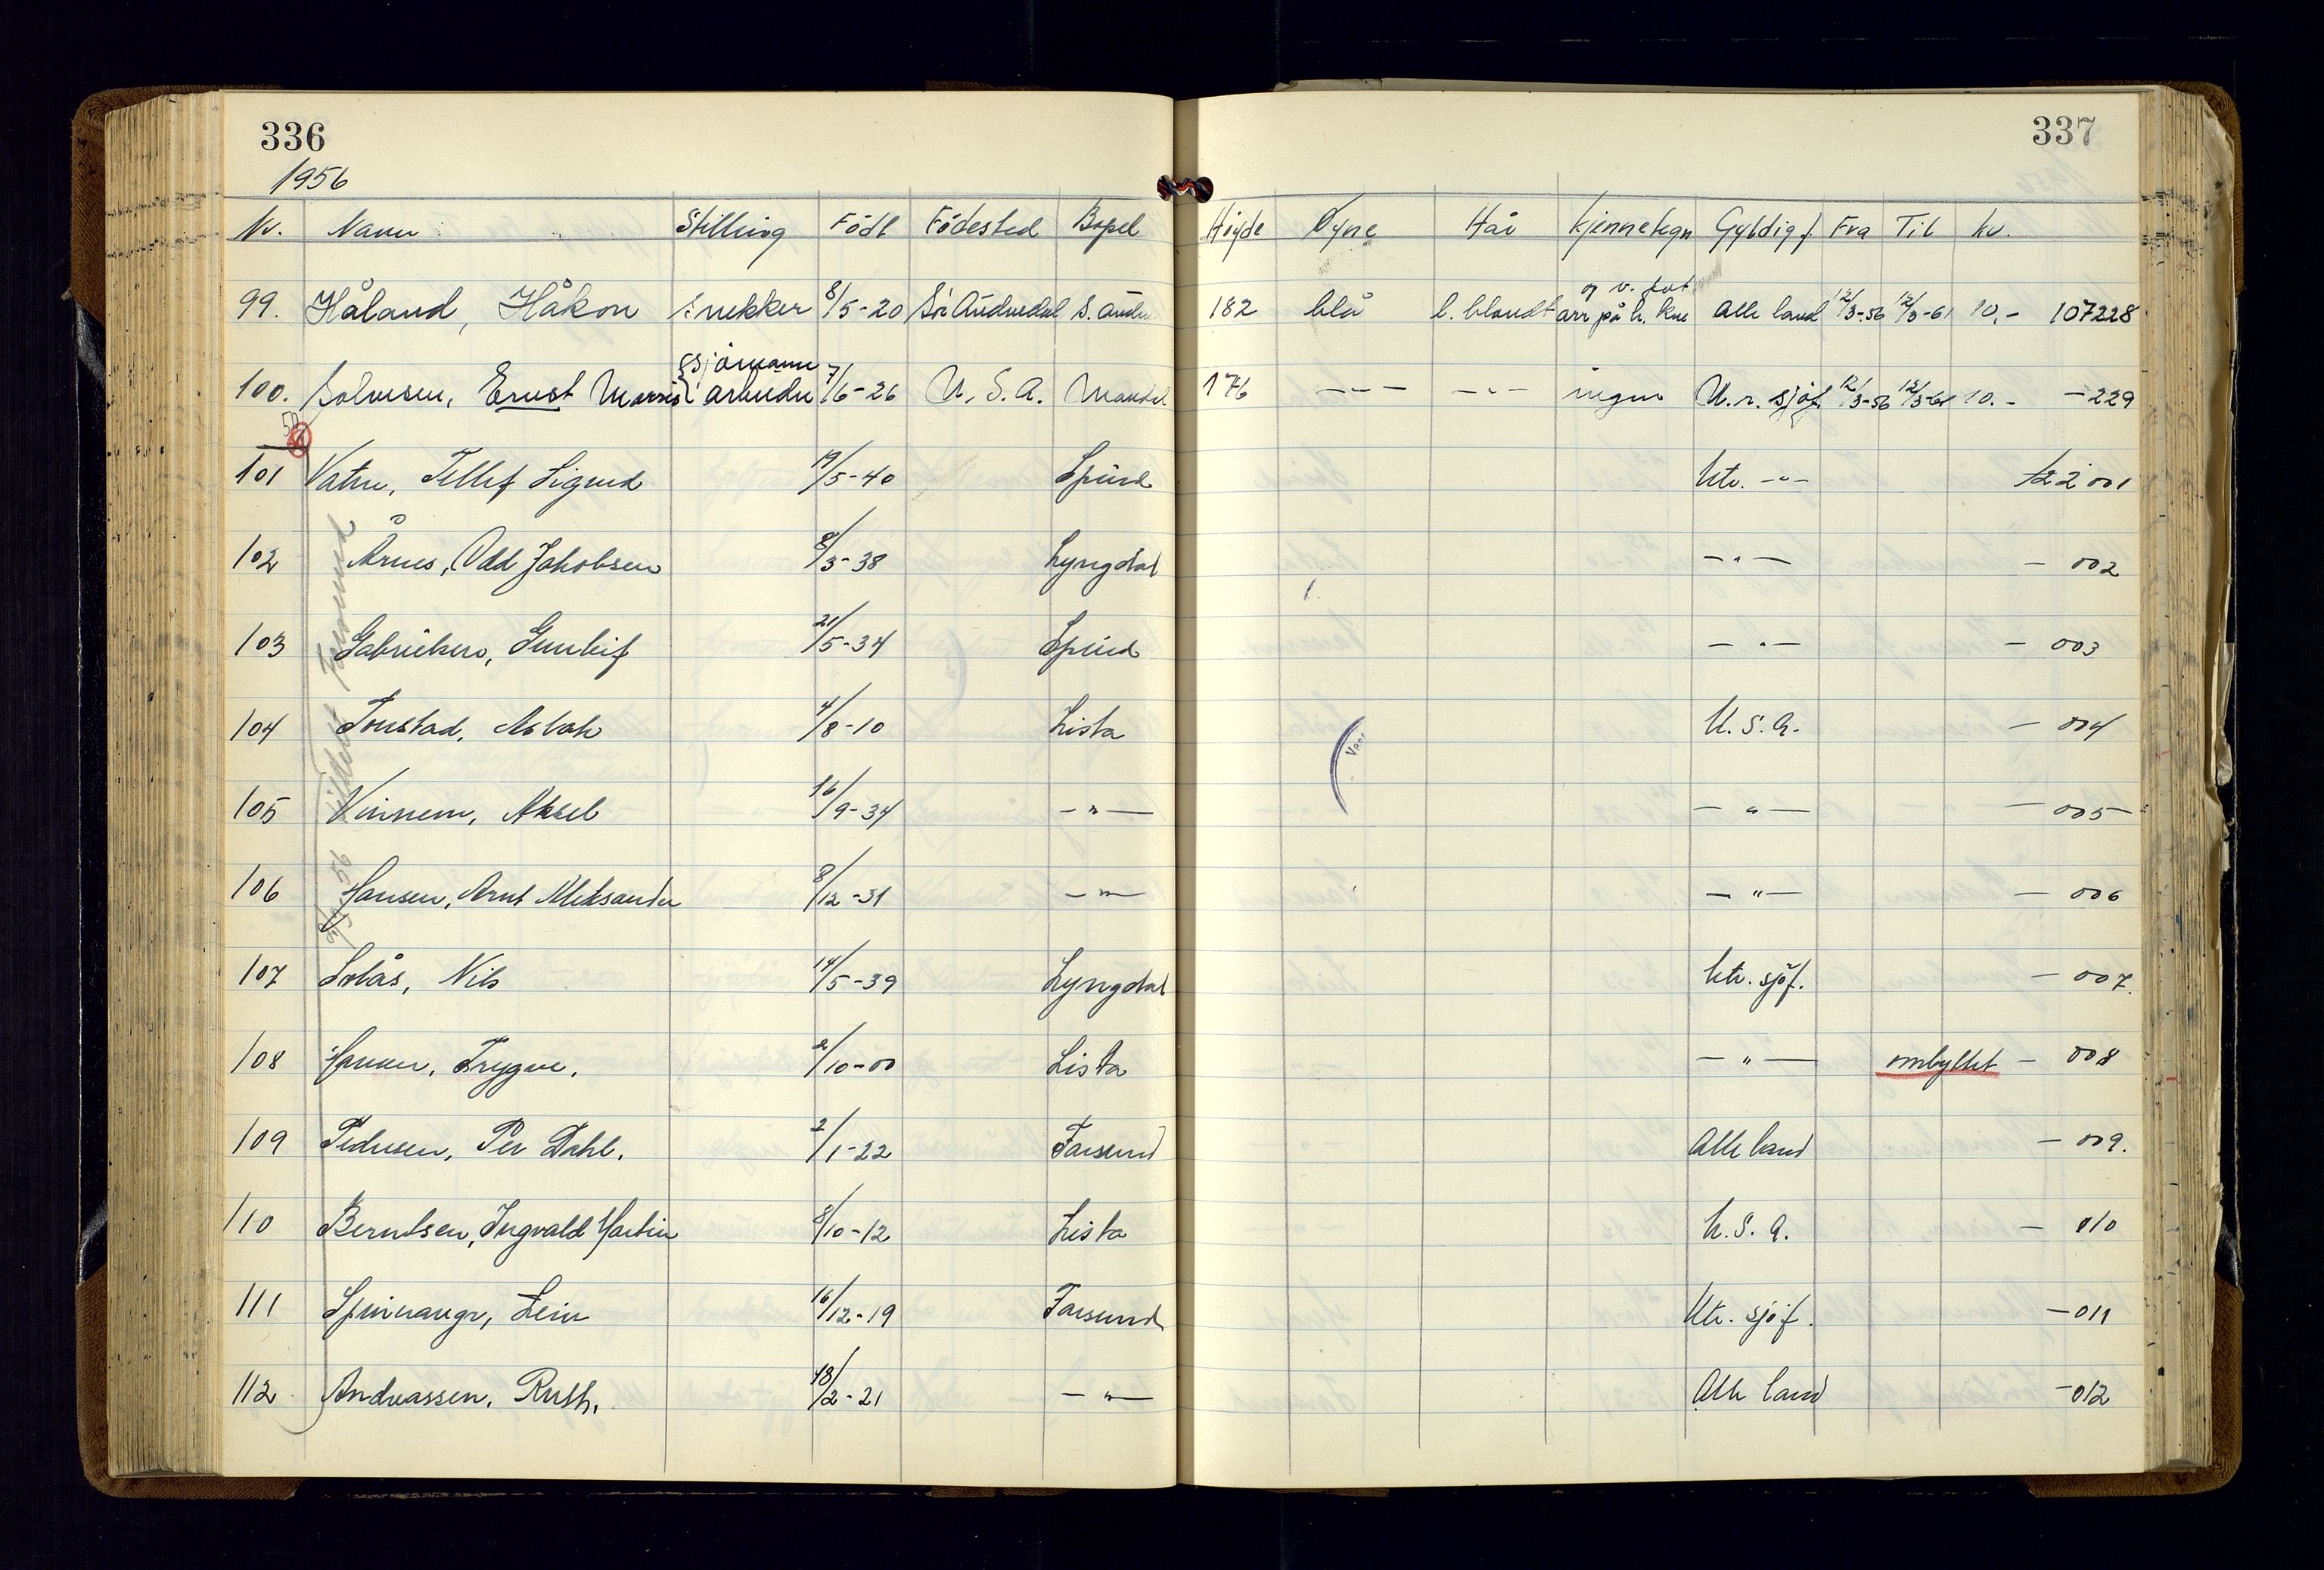 336
337
1956
Nr. Navn Stilling Födt Födested Bopel Höyde Öyne Hår Kjennetegn Gyldig f. Fra Til kr.
og v. fot
99. Håland, Håkon snekker 8/5-20 Sör Audnedal S. Audn. 182 blå l. blondt arr på h. kne Alle land 12/3-56 12/3-61 10.- 107228
sjömann
100. Salvesen, Ernst Morris arbeider 7/6-26 U.S.A. Mandal 176 -"- -"- ingen U.r. sjöf. 12/3-56 12/3-61 10.- -229
101 Vatne, Tellef Sigurd 19/5-40 Spind Utv. -"- 122 001
102 Årnes, Odd Jakobsen 8/3-38 Lyngdal -"- - 002
103 Gabrielsen, Gunleif 21/5-34 Spind -"- - 003
104 Tonstad, Aslak 4/8-10 Lista U.S.A. - 004
105 Vinnem, Aksel 16/9-34 -"- -"- - 005
106 Hansen, Arnt Aleksander 8/12-31 -"- -"- - 006
107 Solås, Nils 14/5-39 Lyngdal Utv. sjöf. - 007.
108 Hansen, Trygve. 2/10-00 Lista -"- ombyttet - 008
109 Pedersen, Per Dahl. 2/1-22 Farsund Alle land - 009.
110 Berntsen, Ingvald Martin 8/10-12 Lista U.S.A. - 010
111 Spinnangr, Lein 16/12-19 Farsund Utv. sjöf. - 011
112 Andreassen, Ruth. 18/2-21 -"- Alle land - 012
56 tildelt Farsund